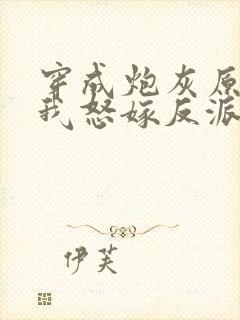 穿成炮灰原
我怒嫁反派
伊芙